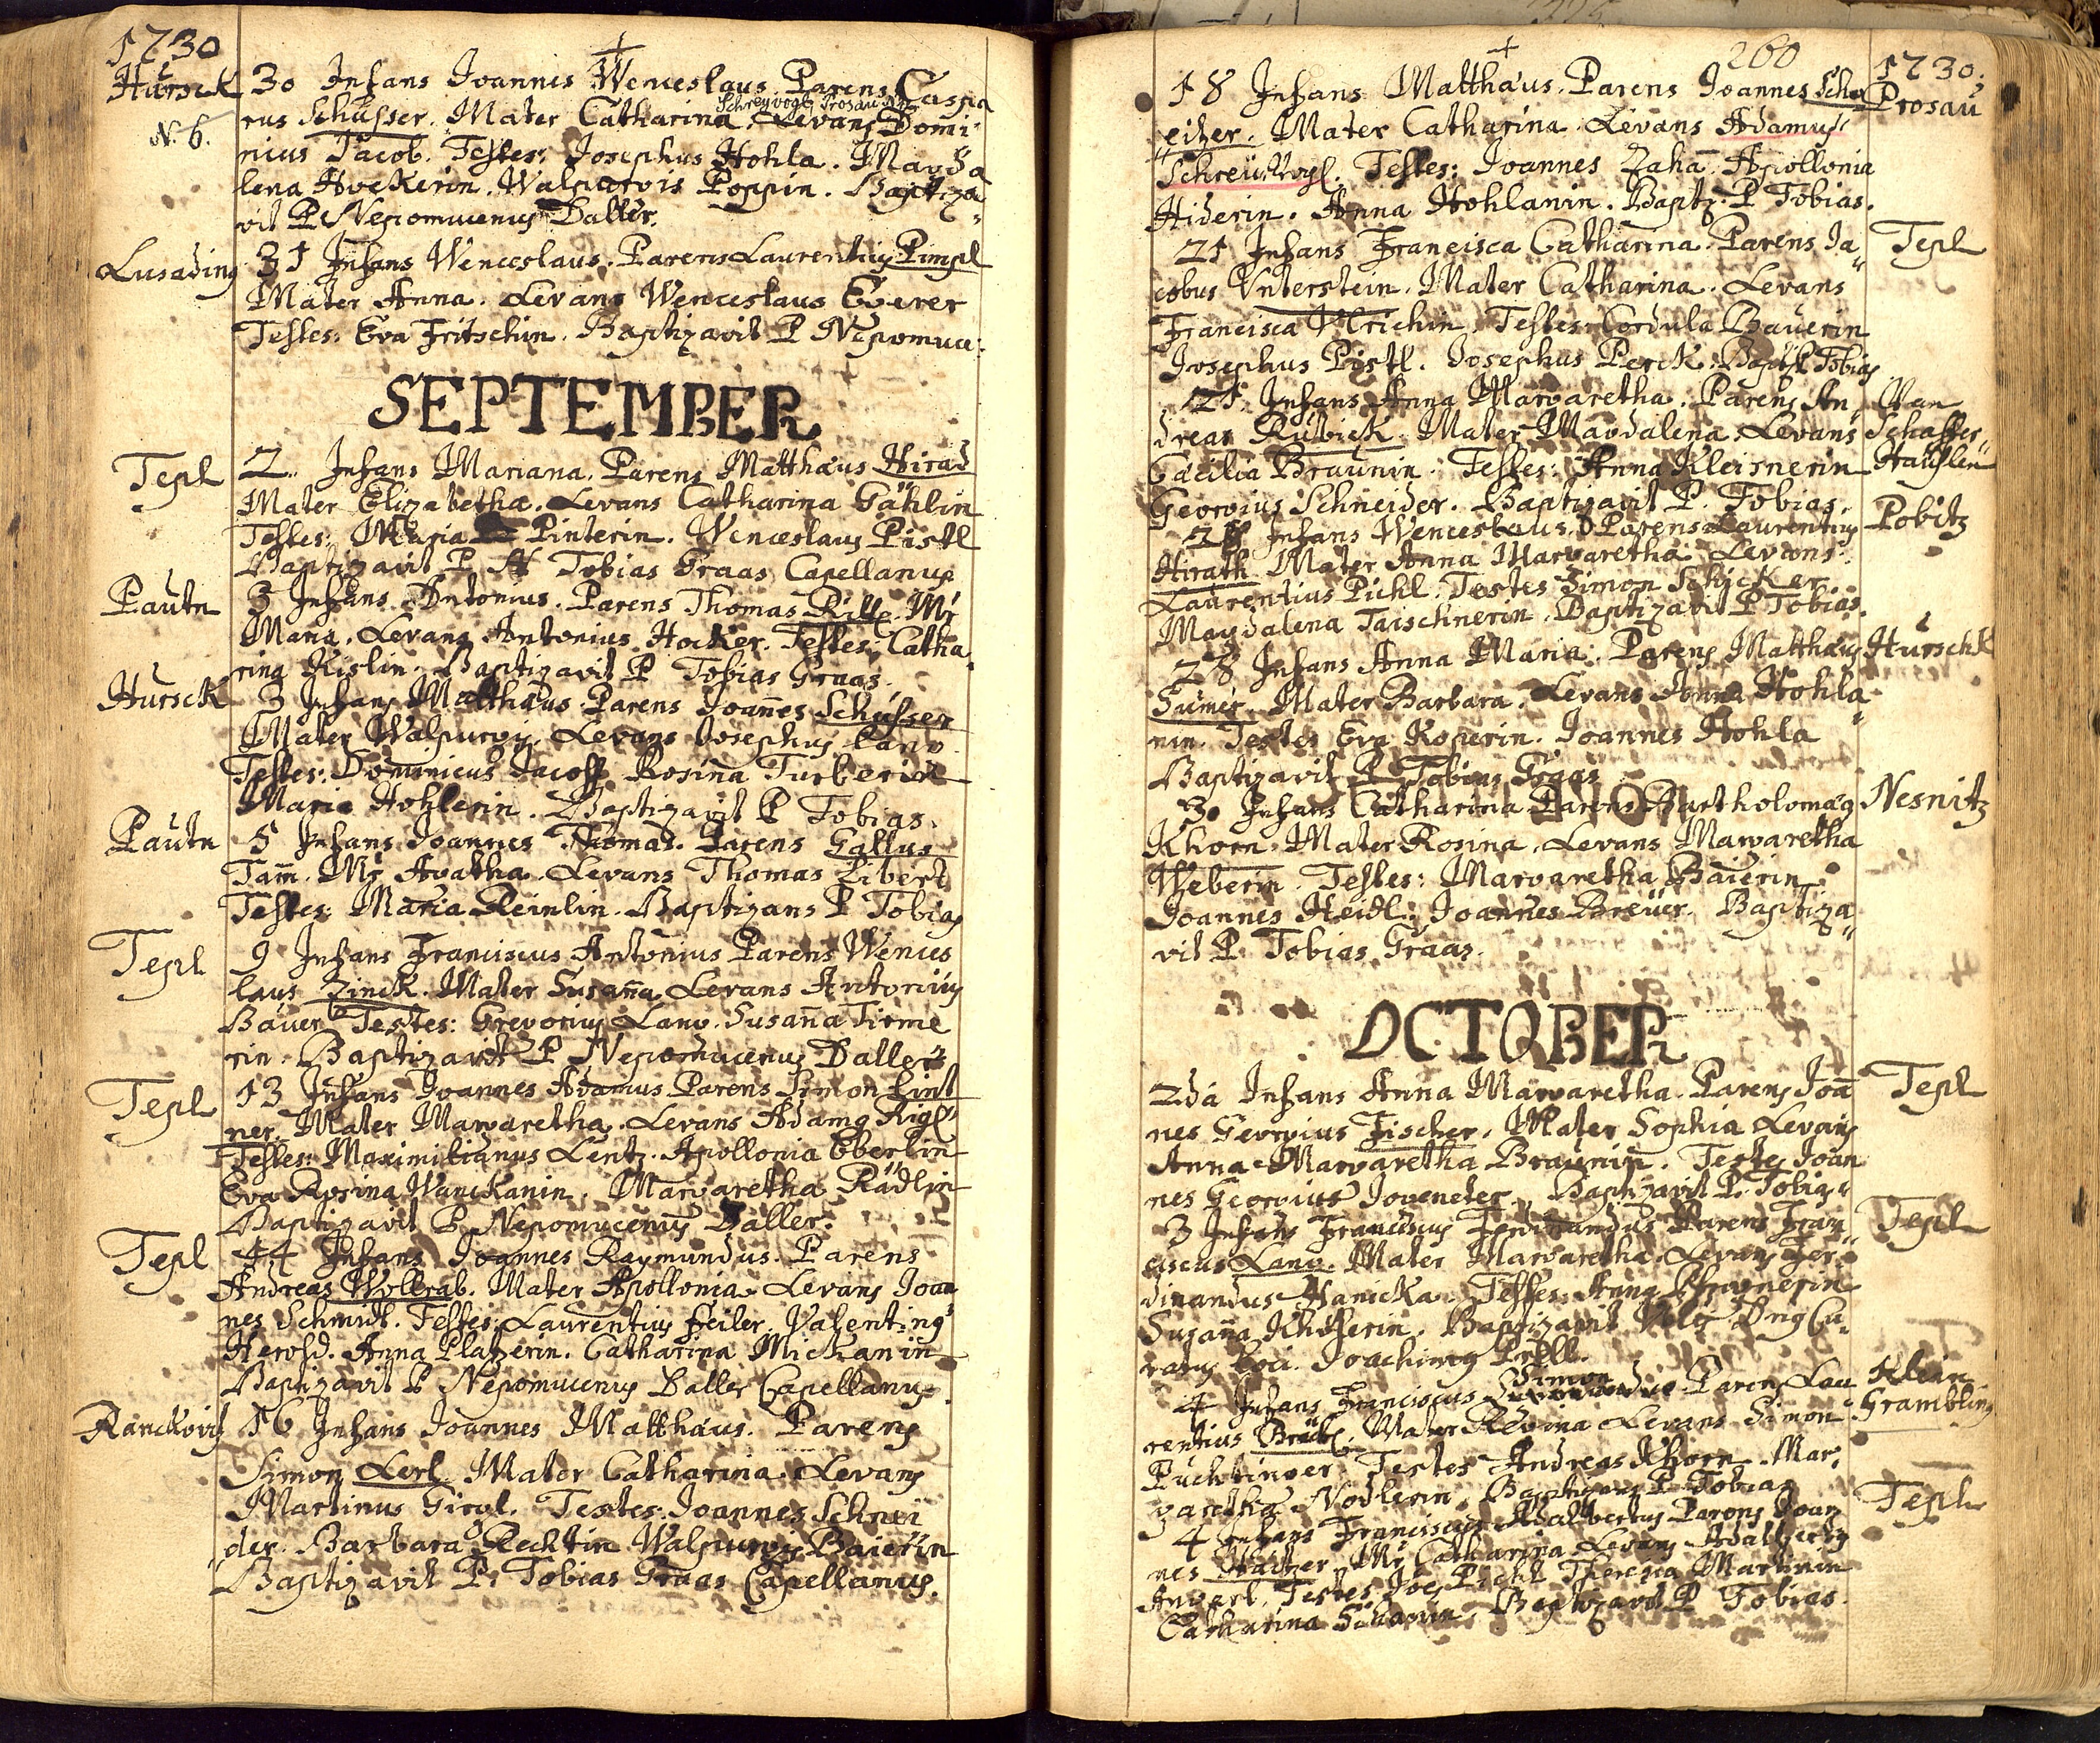 1730
Hursck
N. 6.
30 Infans Joannes Wenceslaus. Parens Caspa
rus Schusser. Mater Catharina. Levans Domi
nicus Jacob. Testes: Josephus Hohla. Magda
lena Hockerin. Walpurgis Poppin. Baptiza
vit P. Nepomucenus Daller.
Lusading
31 Infans Wenceslaus. Parens Laurentius Pimpl
Mater Anna. Levans Wenceslaus Ederer
Testes: Eva Fritschin. Baptizavit P Nepomuc:
SEPTEMBER
Tepl
2. Infans Mariana. Parens Matthæus Hirad
Mater Elizabetha. Levans Catharina Gählin
Testes: Maria Pinterin. Wenceslaus Pistl
Baptizavit P. Tobias Graas Capellanus
Pautn
3 Infans Antonius. Parens Thomas Mr
Maria. Levans Antonius Hocker. Testes: Catha
rina Kislin. Baptizavit P Tobias Graas.
Hursck
3 Infans Matthæus. Parens Joannes Schusser
Mater Walpurgis. Levans Josephus Lang
Testes: Dominicus Jacob Rosina Turberin
Maria Hohlerin. Baptizavit P Tobias.
Pautn
5 Infans Joannes Thomas. Parens Gallus
Tam̄. Mr Agatha. Levans Thomas Libert
Testes: Maria Reinlin. Baptizans P Tobias
Tepl
9 Infans Franciscus Antonius Parens Wences
laus Zinck. Mater Susan̄a Levans Antonius
Bauer Testes: Gregorius Lang. Susan̄a Tirme
rin. Baptizavit P Nepomucenus Daller
Tepl
13 Infans Joannes Adamus Parens Simon Lint
ner. Mater Margaretha. Levans Adamg Rigl
Testes: Maximilianus Lentz. Apollonia Eberlin
Eva Rosina Wanckanin. Margaretha Rädlin
Baptizavit P. Nepomucenus Daller.
Tepl
14 Infans Joannes Raymundus. Parens
Andreas Wollrab. Mater Apollonia. Levans Joan
nes Schmidt. Testes: Laurentius Feiler. Valenting
Herold. Anna Platzerin. Catharina Mickanin
Baptizavit P Nepomucenus Daller Capellanus
Ranckovitz
16 Infans Joannes Matthæus. Parens
Simon Lerl Mater Catharina. Levans
Martinus Girgl. Testes: Joannes Schnei
der. Barbara Rechtin Walpurgis Baierin
Baptizavit P. Tobias Graas Capellanus.
260
1730.
Prosau
18 Infans Matthæus. Parens Joannes Schn
eider. Mater Catharina. Levans Adamus
Schreüvogl. Testes: Joannes Zaha. Apollonia
Hiderin. Anna Hohlanin. Baptz. P Tobias.
Tepl
21 Infans Francisca Catharina. Parens Ja
cobus Unterstein. Mater Catharina. Levans
Francisca Ulrichin. Testes: Cordula Bauerin
Josephus Pistl. Josephus Perck. Bapt. P Tobias
Schaffer
Häuslen
21 Infans Anna Margaretha. Parens An
dreas Rubick. Mater Magdalena. Levans
Cæcilia Braunin. Testes: Anna Kleisnerin
Georgius Schneider. Baptizavit P. Tobias.
Pobitz
Infans Wenceslaus. Parens Laurentius
Hirath Mater Anna Margaretha. Levans
Laurentius Pichl. Testes Simon Schicker
Magdalena Taischnerin. Baptizavit P Tobias.
Hurschk
28 Infans Anna Maria. Parens Matthæus
Mater Barbara. Levans Anna Hohla
nin. Testes Eva Koperin. Joannes Hohla
Baptizavit P Tobias Graas
Nesnitz
30 Infans Catharina Parens Bartholomæg
Khorn. Mater Rosina. Levans Margaretha
Weberin. Testes: Margaretha Baierin
Joannes Heidl. Joannes Breüer. Baptiza
vit P. Tobias Graas.
OCTOBER
Tepl
2da Infans Anna Margaretha. Parens Joan̄
nes Georgius Fischer. Mater Sophia Levans
Anna Margaretha Braunin. Testes Joan
nes Georgius Baptizavit P. Tobias
Tepl
3 Infans Franciscus Ferdinandus Parens Fran
ciscus Lang. Mater Margaretha. Levans Fer
dinandus Hanicka. Testes: Anna
Susan̄a Baptizavit Dng Cu
ratus loci. Joachimg Pröll.
Klein
Grambling
4 Infans Franciscus Simon Parens Lau
rentius Mater Regina Levans Simon
Puchtinger Testes Andreas Khorn. Mar.
garetha Nodlerin. Baptizans P Tobias
Tepl
4 Infans Franciscus Adalbertus Parens Joan
nes Mr Catharina Levans Adalbertg
Angerl. Testes Joes Pichl Theresia Martinin
Catharina Baptizavit P Tobias.